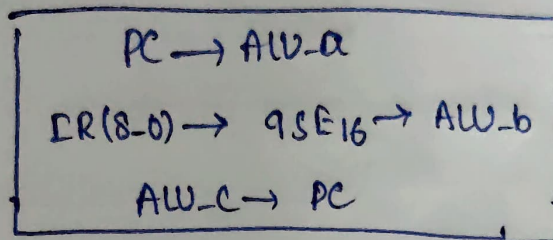 PC → ALU_a
IR(8-0) → 9SE16 → ALU_b
ALU_C → PC